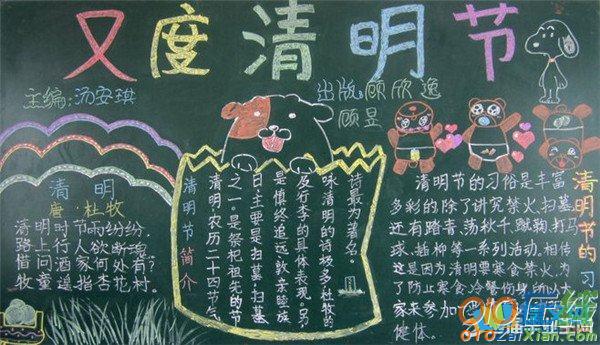 又度清明节
主编:汤安琪
出版:顾欣逸
顾昱
清明
唐·杜牧
清明时节雨纷纷,
路上行人欲断魂
借问酒家何处有?
牧童遥指杏花村.
清明节简介
清明,农历二十四节气
之一.是祭祀祖先的节
日主要是扫墓.扫墓
是慎终追远敦亲睦族
及行孝的具体表现.另,
咏清明的诗极多杜牧的
诗最为著名.
清明节的习俗是丰富
多彩的除了讲究禁火,扫墓
还有踏青、荡秋千、蹴鞠打马
球、插柳等一系列活动.相传
这是因为清明要寒食禁火,为
了防止寒食冷餐伤身,所以大
家来参加
健体.
清明节的习